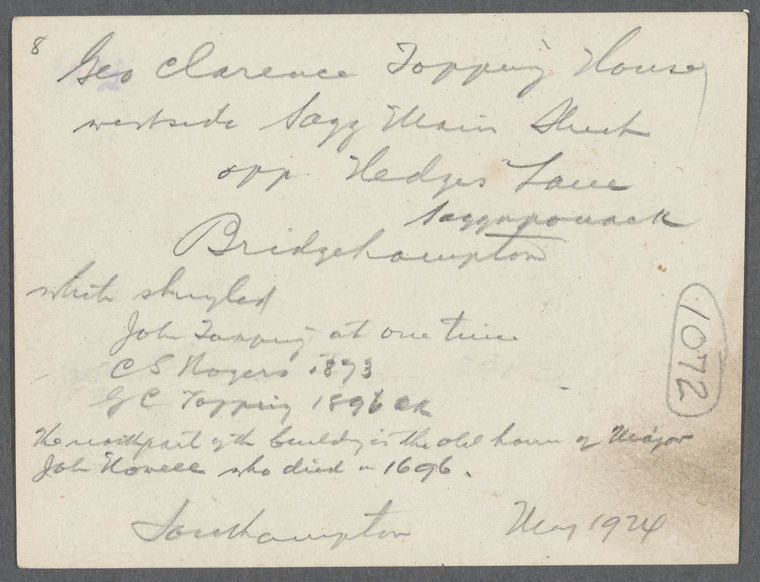 8
Geo Clarence Topping House
westside Sagg Main Street
opp. Hedges Lane
Saggaponack
Bridgehampton
white shingled
John Topping at one time
C S Rogers 1873
G C Topping 1896
The north part of the building is the old home of Major
John Howell who died in 1696.
Southampton May 1924
1072